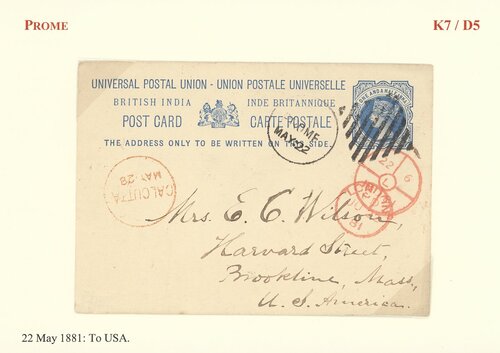 PROME
K7 / D5
UNIVERSAL POSTAL UNION - UNION POSTALE UNIVERSELLE
BRITISH INDIA INDE BRITANNIQUE
POST CARD CARTE POSTALE
THE ADDRESS ONLY TO BE WRITTEN ON THIS SIDE.
PROME
MAY 22
CALCUTTA
MAY 28
22 6
L
81
Mrs. E. C. Wilson,
Harvard Street,
Brookline, Mass,
U. S. America.
22 May 1881: To USA.